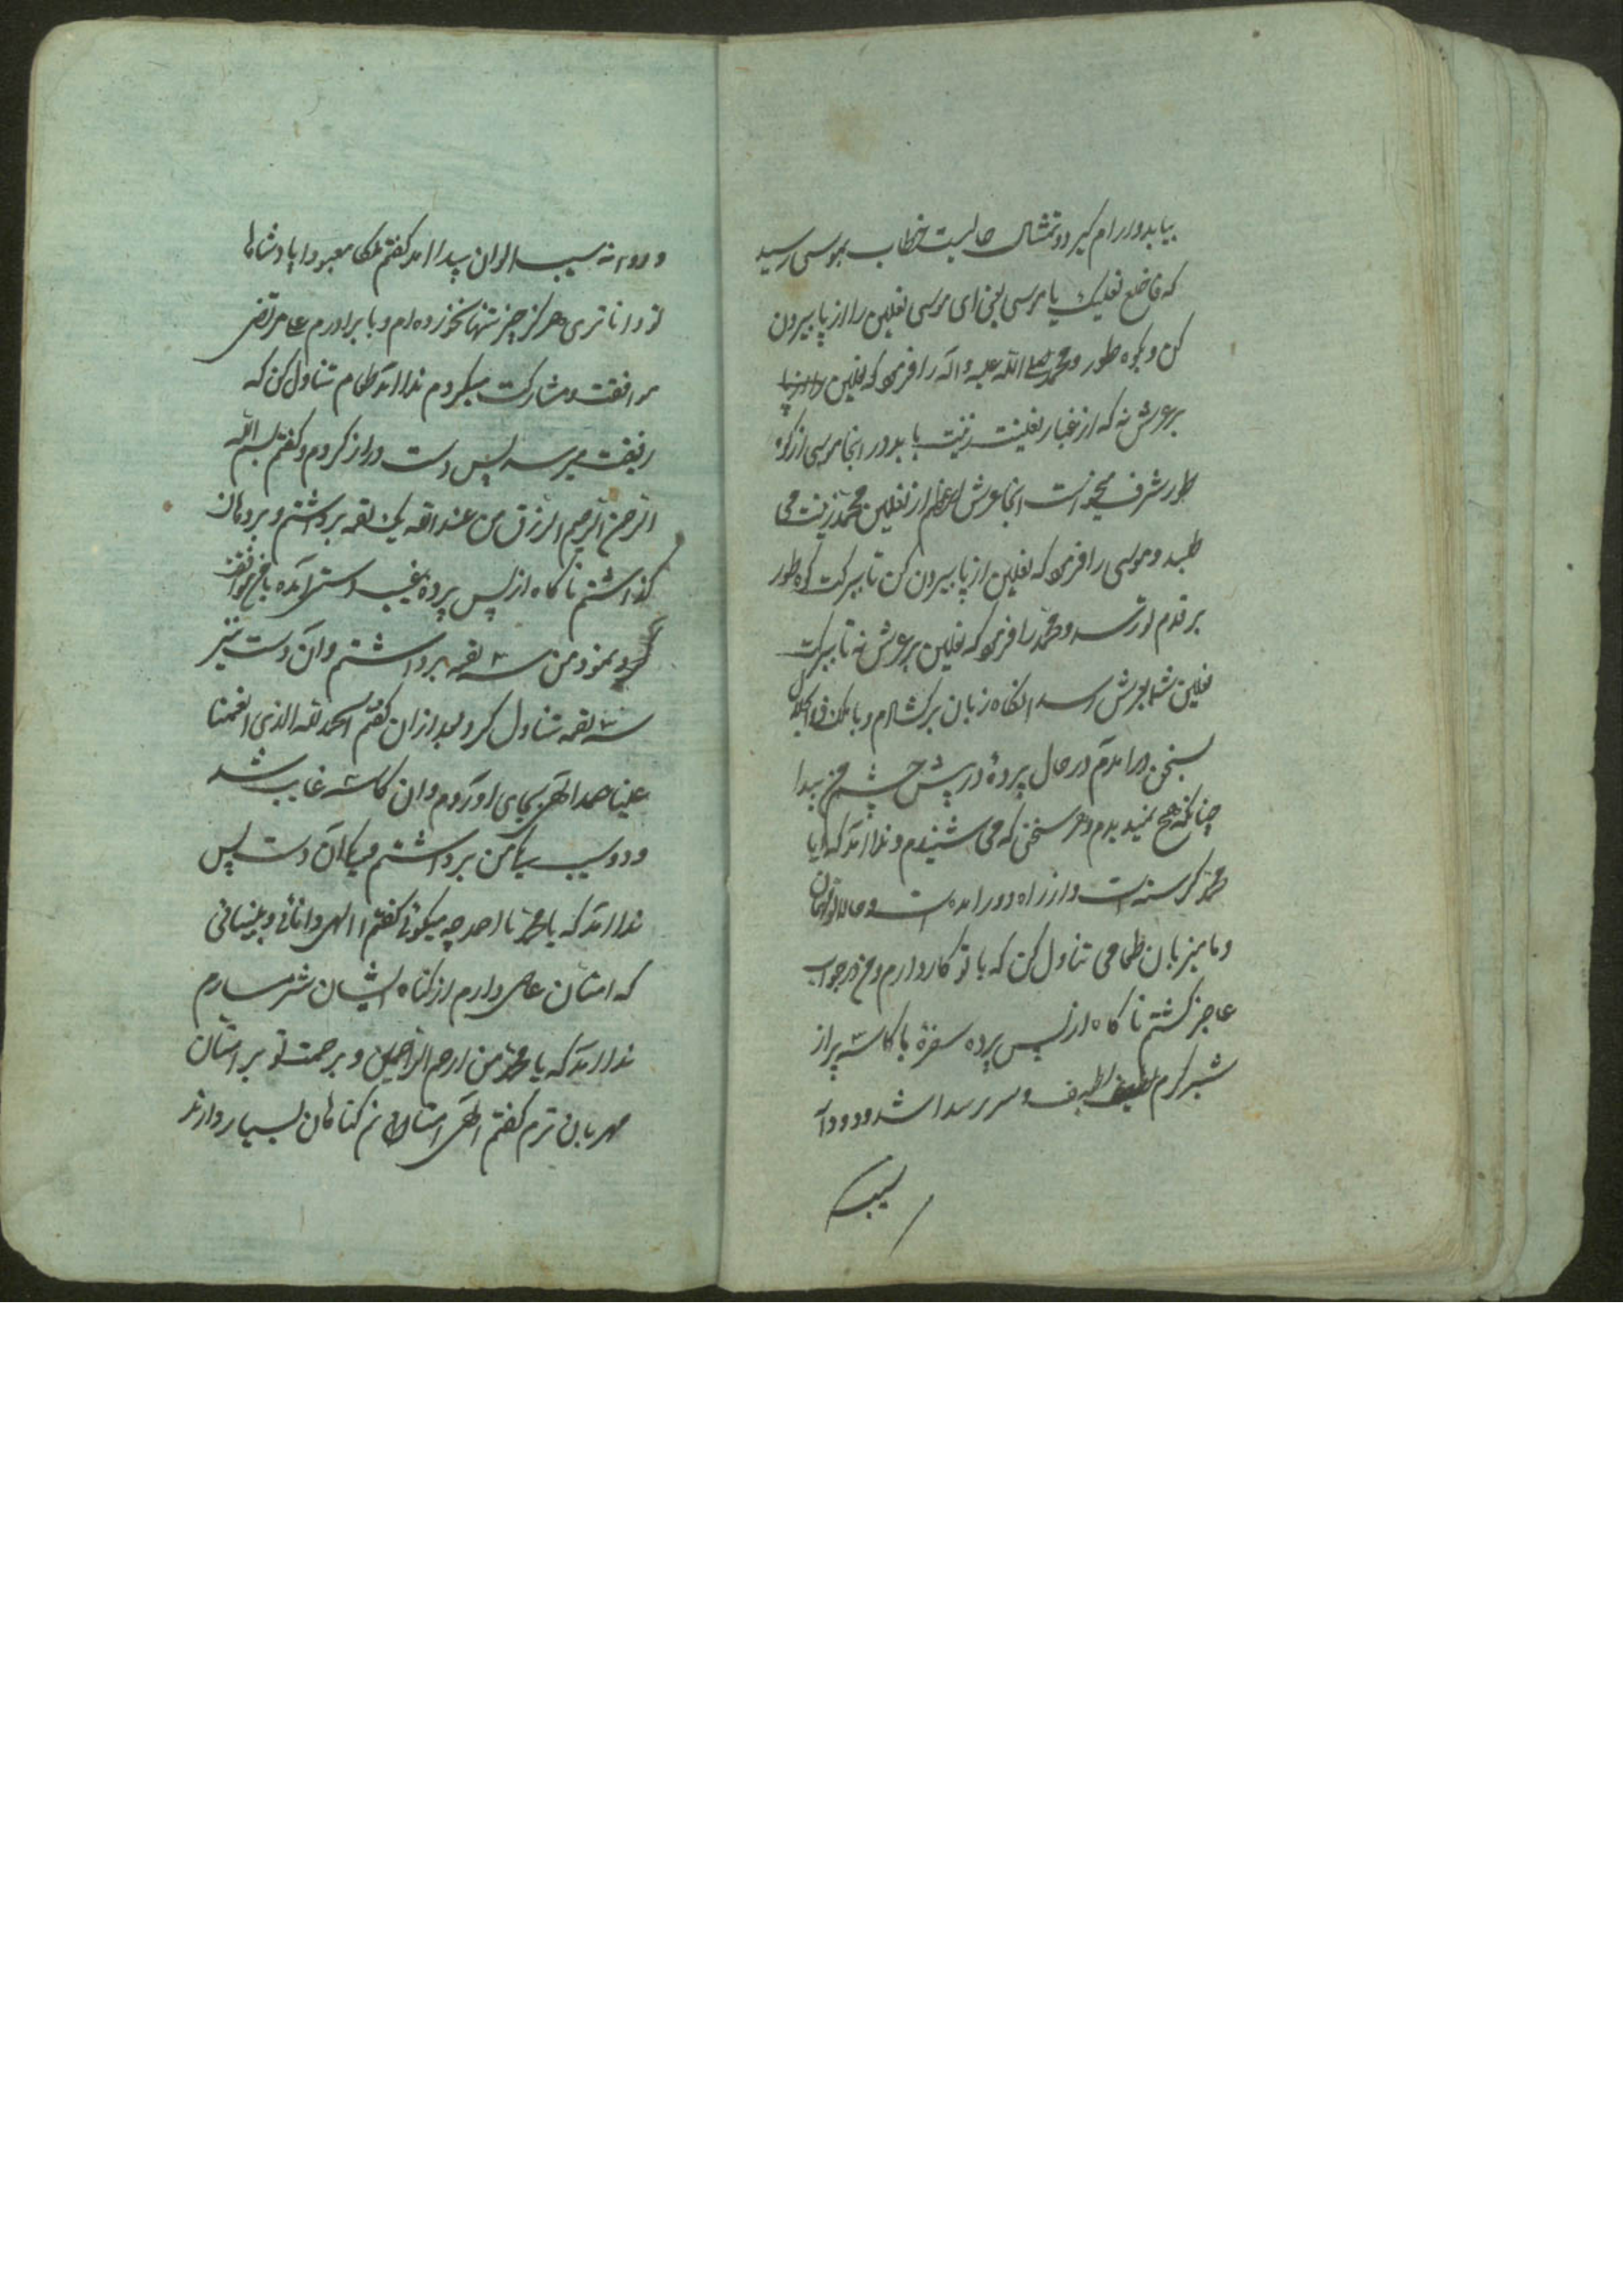 بیابد و ارام گیرد و تمثال حالیست خطاب بموسی رسید
که فاخلع نعلیک یا موسی یعنی ای موسی نعلین را از پا بیرون
کن و بکوه طور و محمد صلی الله علیه و آله را فرمود که نعلین
بر عرش نه که از غبار نعلینت زینت یابد در اینجا موسی از کوه
طور شرف میخواست اینجا عرش اعظم از نعلین محمد زینت می
طلبد و موسی را فرمود که نعلین از پا بیرون کن تا ببرکت کوه طور
بر قدم تو رسد و محمد را فرمود که نعلین بر عرش نه تا ببرکت
نعلین شما بعرش رسد انگاه زبان برگشادم و با ملک
بسخن درامدم در حال پردهٔ در پیش چشم من پیدا
چنانکه هیچ نمیدیدم و هر سخنی که می شنیدم و ندا آمد که ایا
محمد گرسنه است و از راه دور امده است و حالا تو مهمان
و ما میزبان طعامی تناول کن که با تو کار دارم و من در جواب
عاجز گشتم ناگاه از پس پرده سفرهٔ با کاسه پر از
شیر گرم لطیف و سر پیدا شد و دو دانه
سیب
و دو دانه سیب الوان پیدا امد گفتم ملکا معبودا پادشاها
تو داناتری هرگز چیز تنها نخورده ام و با برادرم علی مرتضی
موافقت و مشارکت میکردم ندا آمد طعام تناول کن که
رفیقت میرسد پس دست دراز کردم و گفتم بسم الله
الرحمن الرحیم الرزق من عند الله یک لقمه برداشتم و بر دهان
گذاشتم ناگاه از پس پرده غیب دستی آمده با من موافقت
نمود من سه لقمه برداشتم و آن دست نیز
سه لقمه تناول کرد بعد از ان گفتم الحمد لله الذی انعمنا
علینا حمد الهی بجای آوردم و ان کاسه غایب شد
و دو سیب یکی من برداشتم و یکی آن دست پس
ندا آمد که یا محمد یا احمد چه میگوئی گفتم الهی دانائی و بینائی
که امتان عاصی دارم از گناه ایشان شرمسارم
ندا آمد که یا محمد من ارحم الراحمین و برحمت تو بر امتان
مهربان ترم گفتم الهی امتان من گناهان بسیار دارند